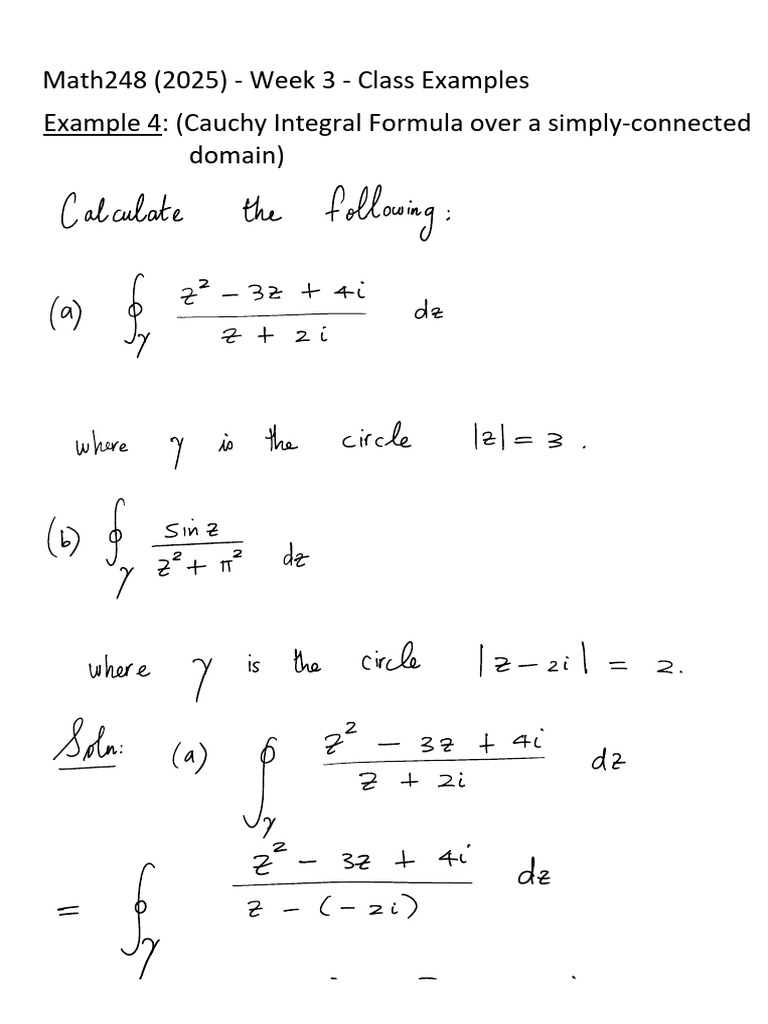 Math248 (2025) - Week 3 - Class Examples
Example 4: (Cauchy Integral Formula over a simply-connected
domain)
Calculate the following:
(a) ∮_γ (z² - 3z + 4i)/(z + 2i) dz
where γ is the circle |z| = 3.
(b) ∮_γ (sin z)/(z² + π²) dz
where γ is the circle |z - 2i| = 2.
Soln: (a) ∮_γ (z² - 3z + 4i)/(z + 2i) dz
= ∮_γ (z² - 3z + 4i)/(z - (-2i)) dz